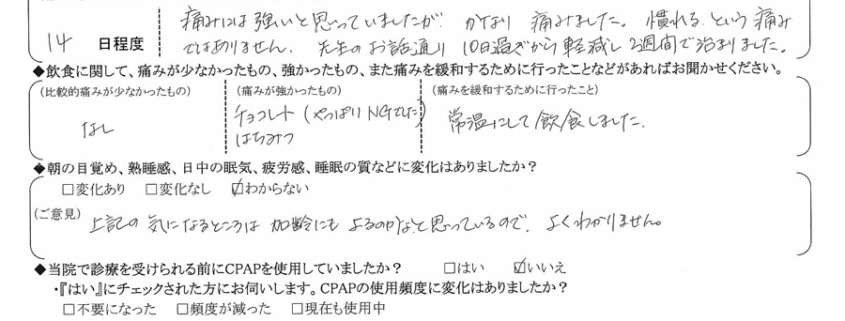 痛みには強いと思っていましたが、かなり痛みました。慣れるという痛み
14 日程度 ではありません。先生のお話通り10日過ぎから軽減し2週間で治まりました。
◆飲食に関して、痛みが少なかったもの、強かったもの、また痛みを緩和するために行ったことなどがあればお聞かせください。
(比較的痛みが少なかったもの) (痛みが強かったもの) (痛みを緩和するために行ったこと)
なし チョコレート(やっぱりNGでした) 常温にして飲食しました。
はちみつ
◆朝の目覚め、熟睡感、日中の眠気、疲労感、睡眠の質などに変化はありましたか?
□変化あり □変化なし ☑わからない
(ご意見) 上記の気になるところは加齢にもよるのかな、と思っているので、よくわかりません。
◆当院で診療を受けられる前にCPAPを使用していましたか? □はい ☑いいえ
・『はい』にチェックされた方にお伺いします。CPAPの使用頻度に変化はありましたか?
□不要になった □頻度が減った □現在も使用中